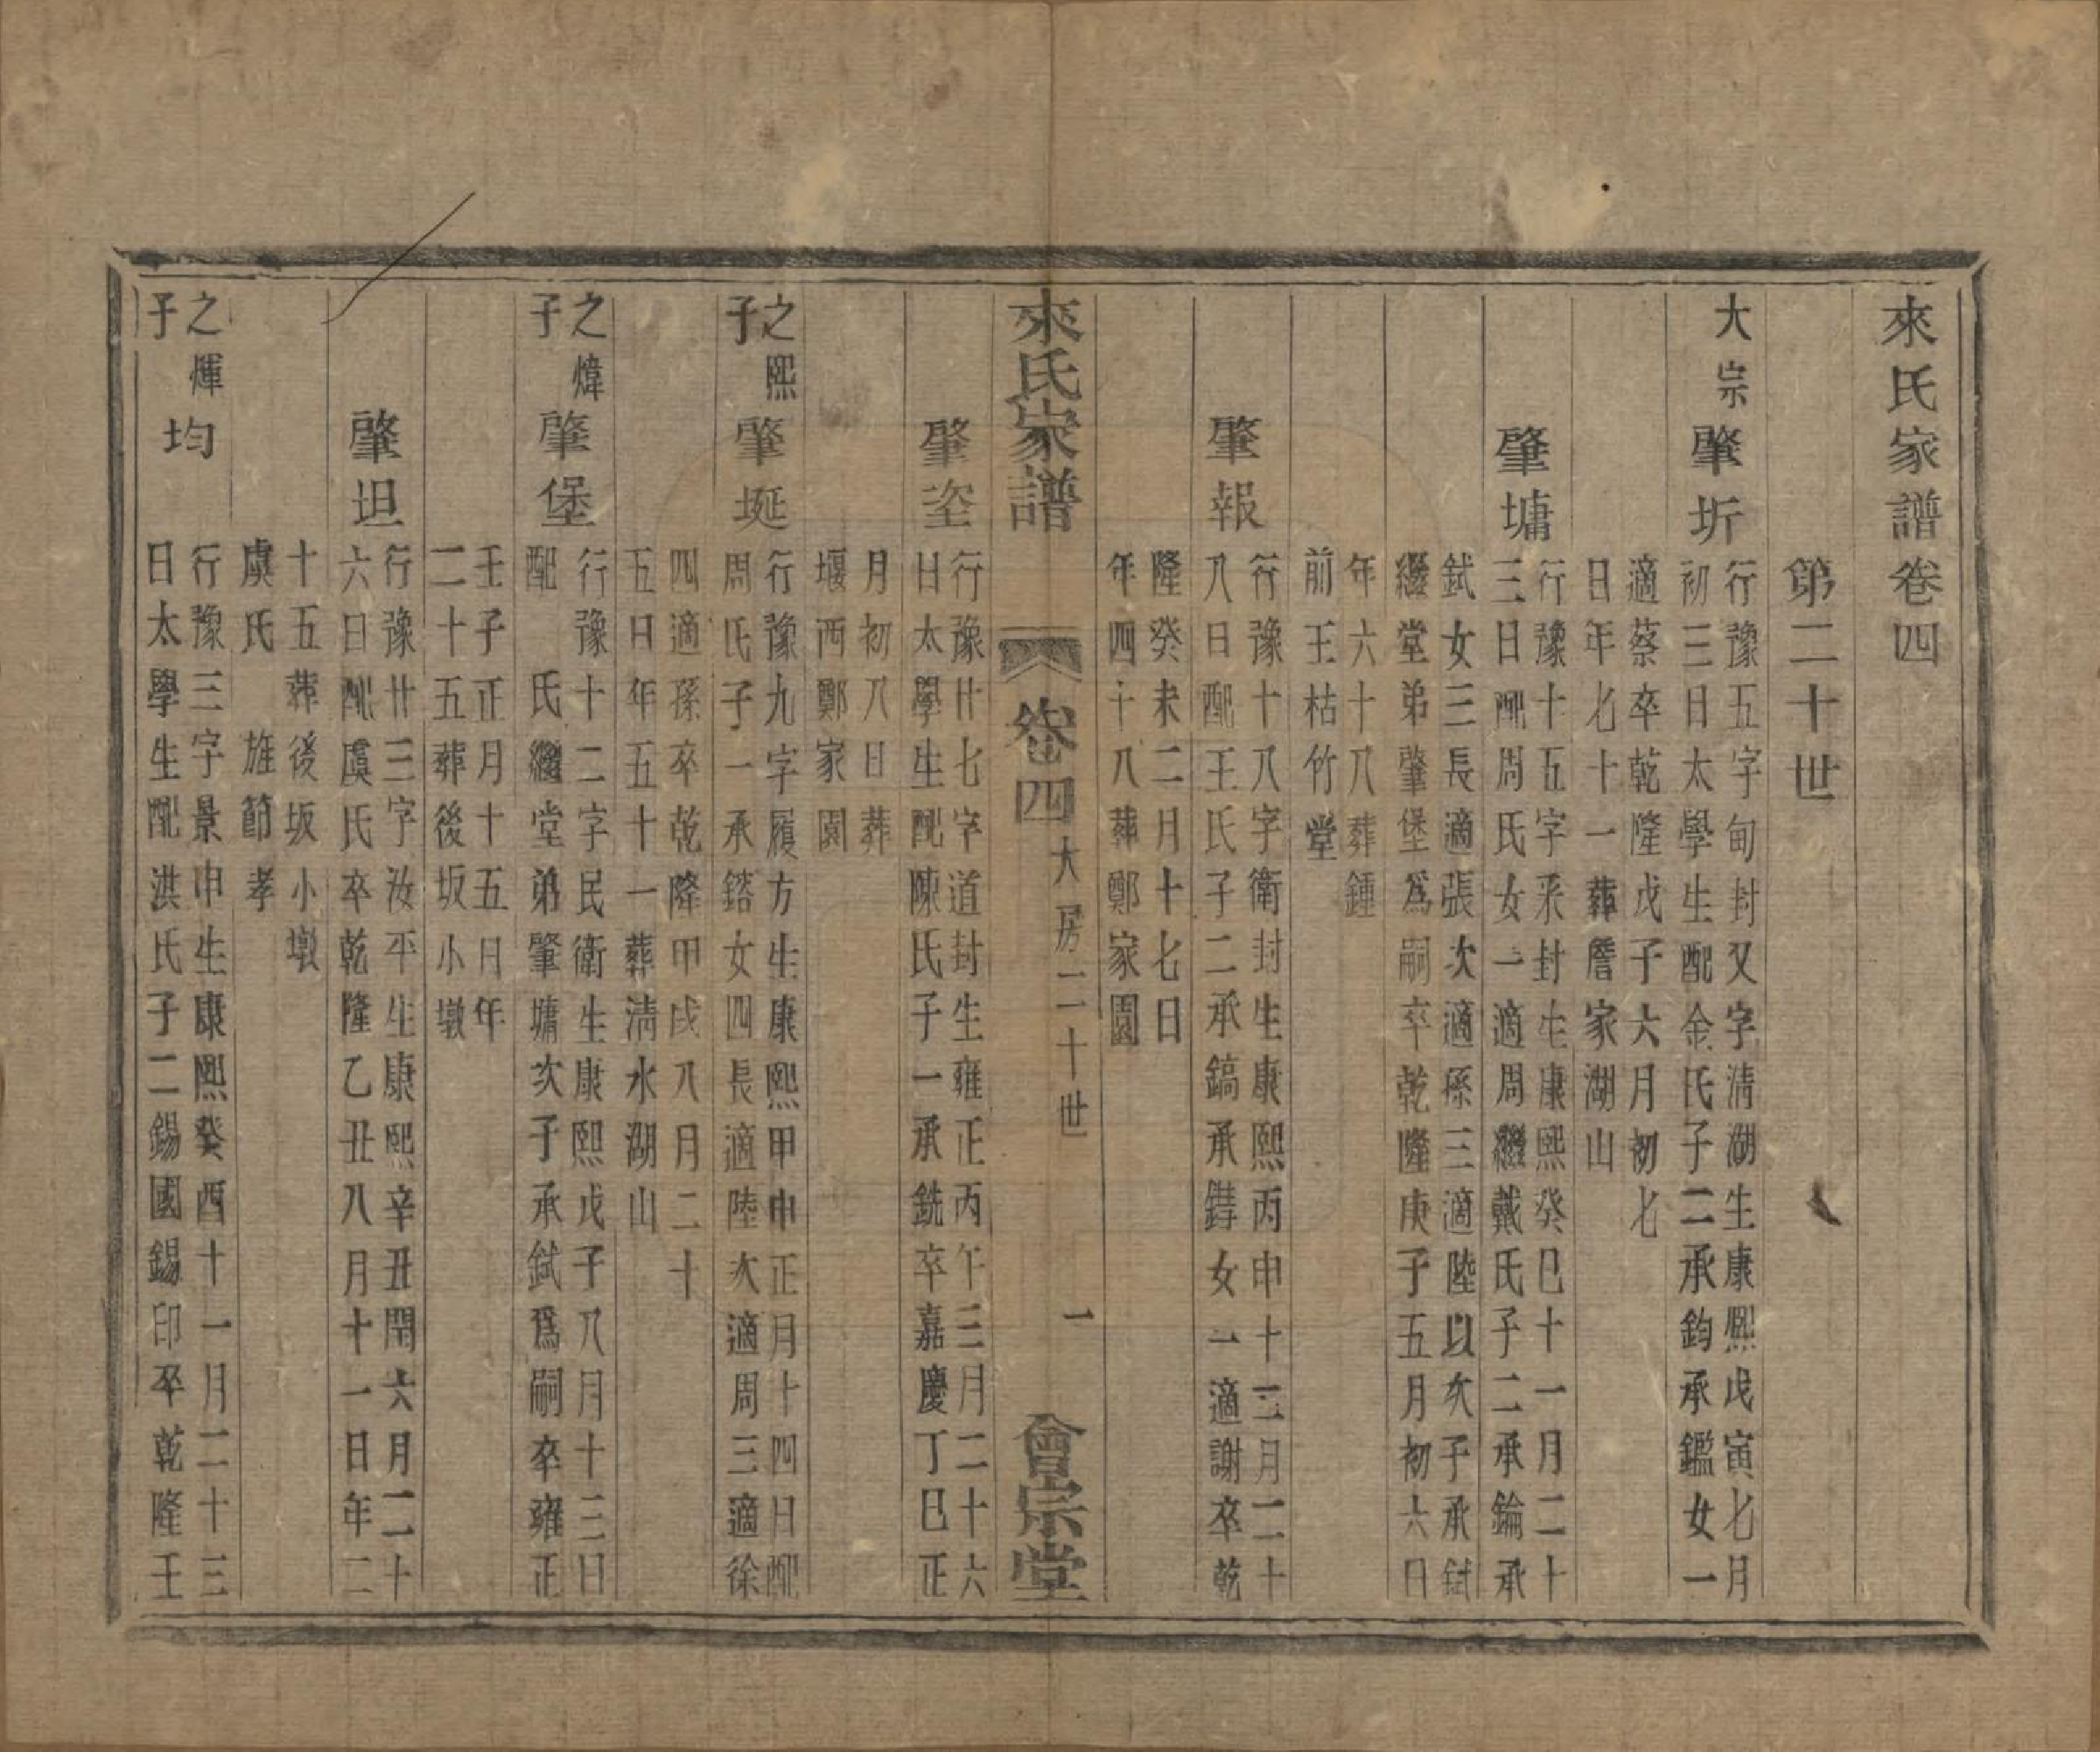 來氏家譜卷四
第二十世
大宗
肇圻
行豫五字甸封又字清湖生康熙戊寅七月
初三日太學生配金氏子二承鈞承鑑女一
適蔡卒乾隆戊子六月初七
日年七十一葬詹家湖山
肇墉
行豫十五字采封生康熙癸巳十一月二十
三日配周氏女一適周繼戴氏子二承錀承
鉽女三長適張次適孫三適陸以次子承鉽
繼堂弟肇堡爲嗣卒乾隆庚子五月初六日
年六十八葬鍾
前王枯竹堂
肇報
行豫十八字衛封生康熙丙申十二月二十
八日配王氏子二承鎬承鑄女一適謝卒乾
隆癸未二月十七日
年四十八葬鄭家園
來氏家譜
卷四
大房二十世
一
會宗堂
肇垐
行豫廿七字道封生雍正丙午三月二十六
日太學生配陳氏子一承銑卒嘉慶丁巳正
月初八日葬
堰西鄭家園
之熙
子
肇埏
行豫九字履方生康熙甲申正月十四日配
周氏子一承鎔女四長適陸次適周三適徐
四適孫卒乾隆甲戌八月二十
五日年五十一葬清水湖山
之煒
子
肇堡
行豫十二字民衛生康熙戊子八月十三日
配 氏繼堂弟肇墉次子承鉽爲嗣卒雍正
壬子正月十五日年
二十五葬後坂小墩
肇坦
行豫廿三字汝平生康熙辛丑閏六月二十
六日配虞氏卒乾隆乙丑八月十一日年二
十五葬後坂小墩
虞氏 旌節孝
之煇
子
均
行豫三字景申生康熙癸酉十一月二十三
日太學生配洪氏子二錫國錫印卒乾隆壬